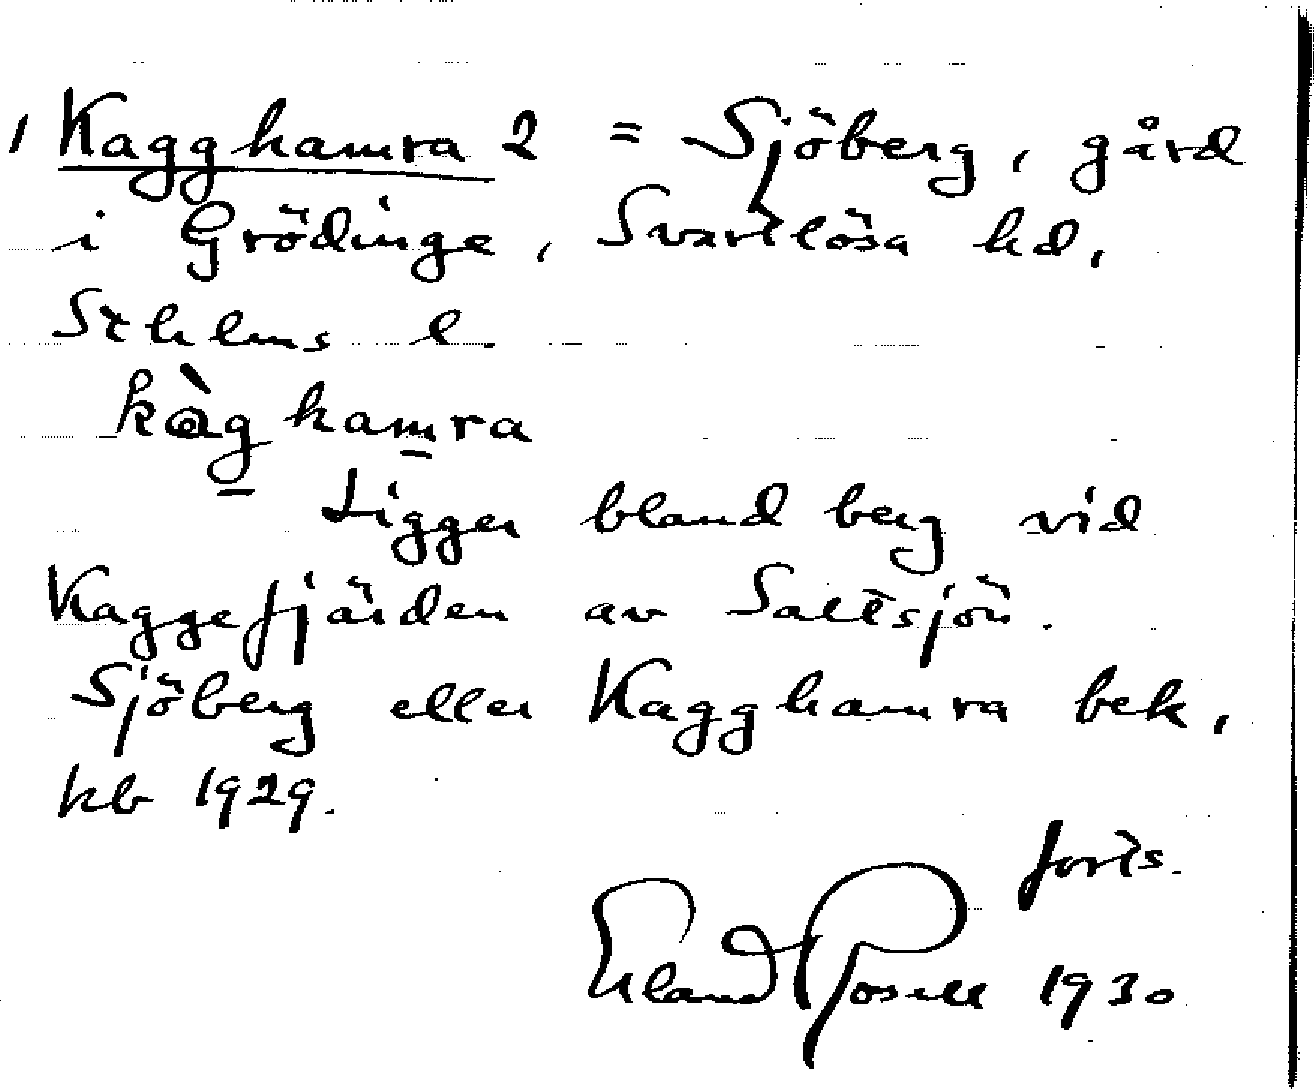 1 Kagghamra 2 = Sjöberg, gård
i Grödinge, Svartlösa hd,
Sthlms l.
kàg hamra
Ligger bland berg vid
Kaggefjärden av Saltsjön.
Sjöberg eller Kagghamra bek,
kb 1929.
forts.
Erland Rosell 1930